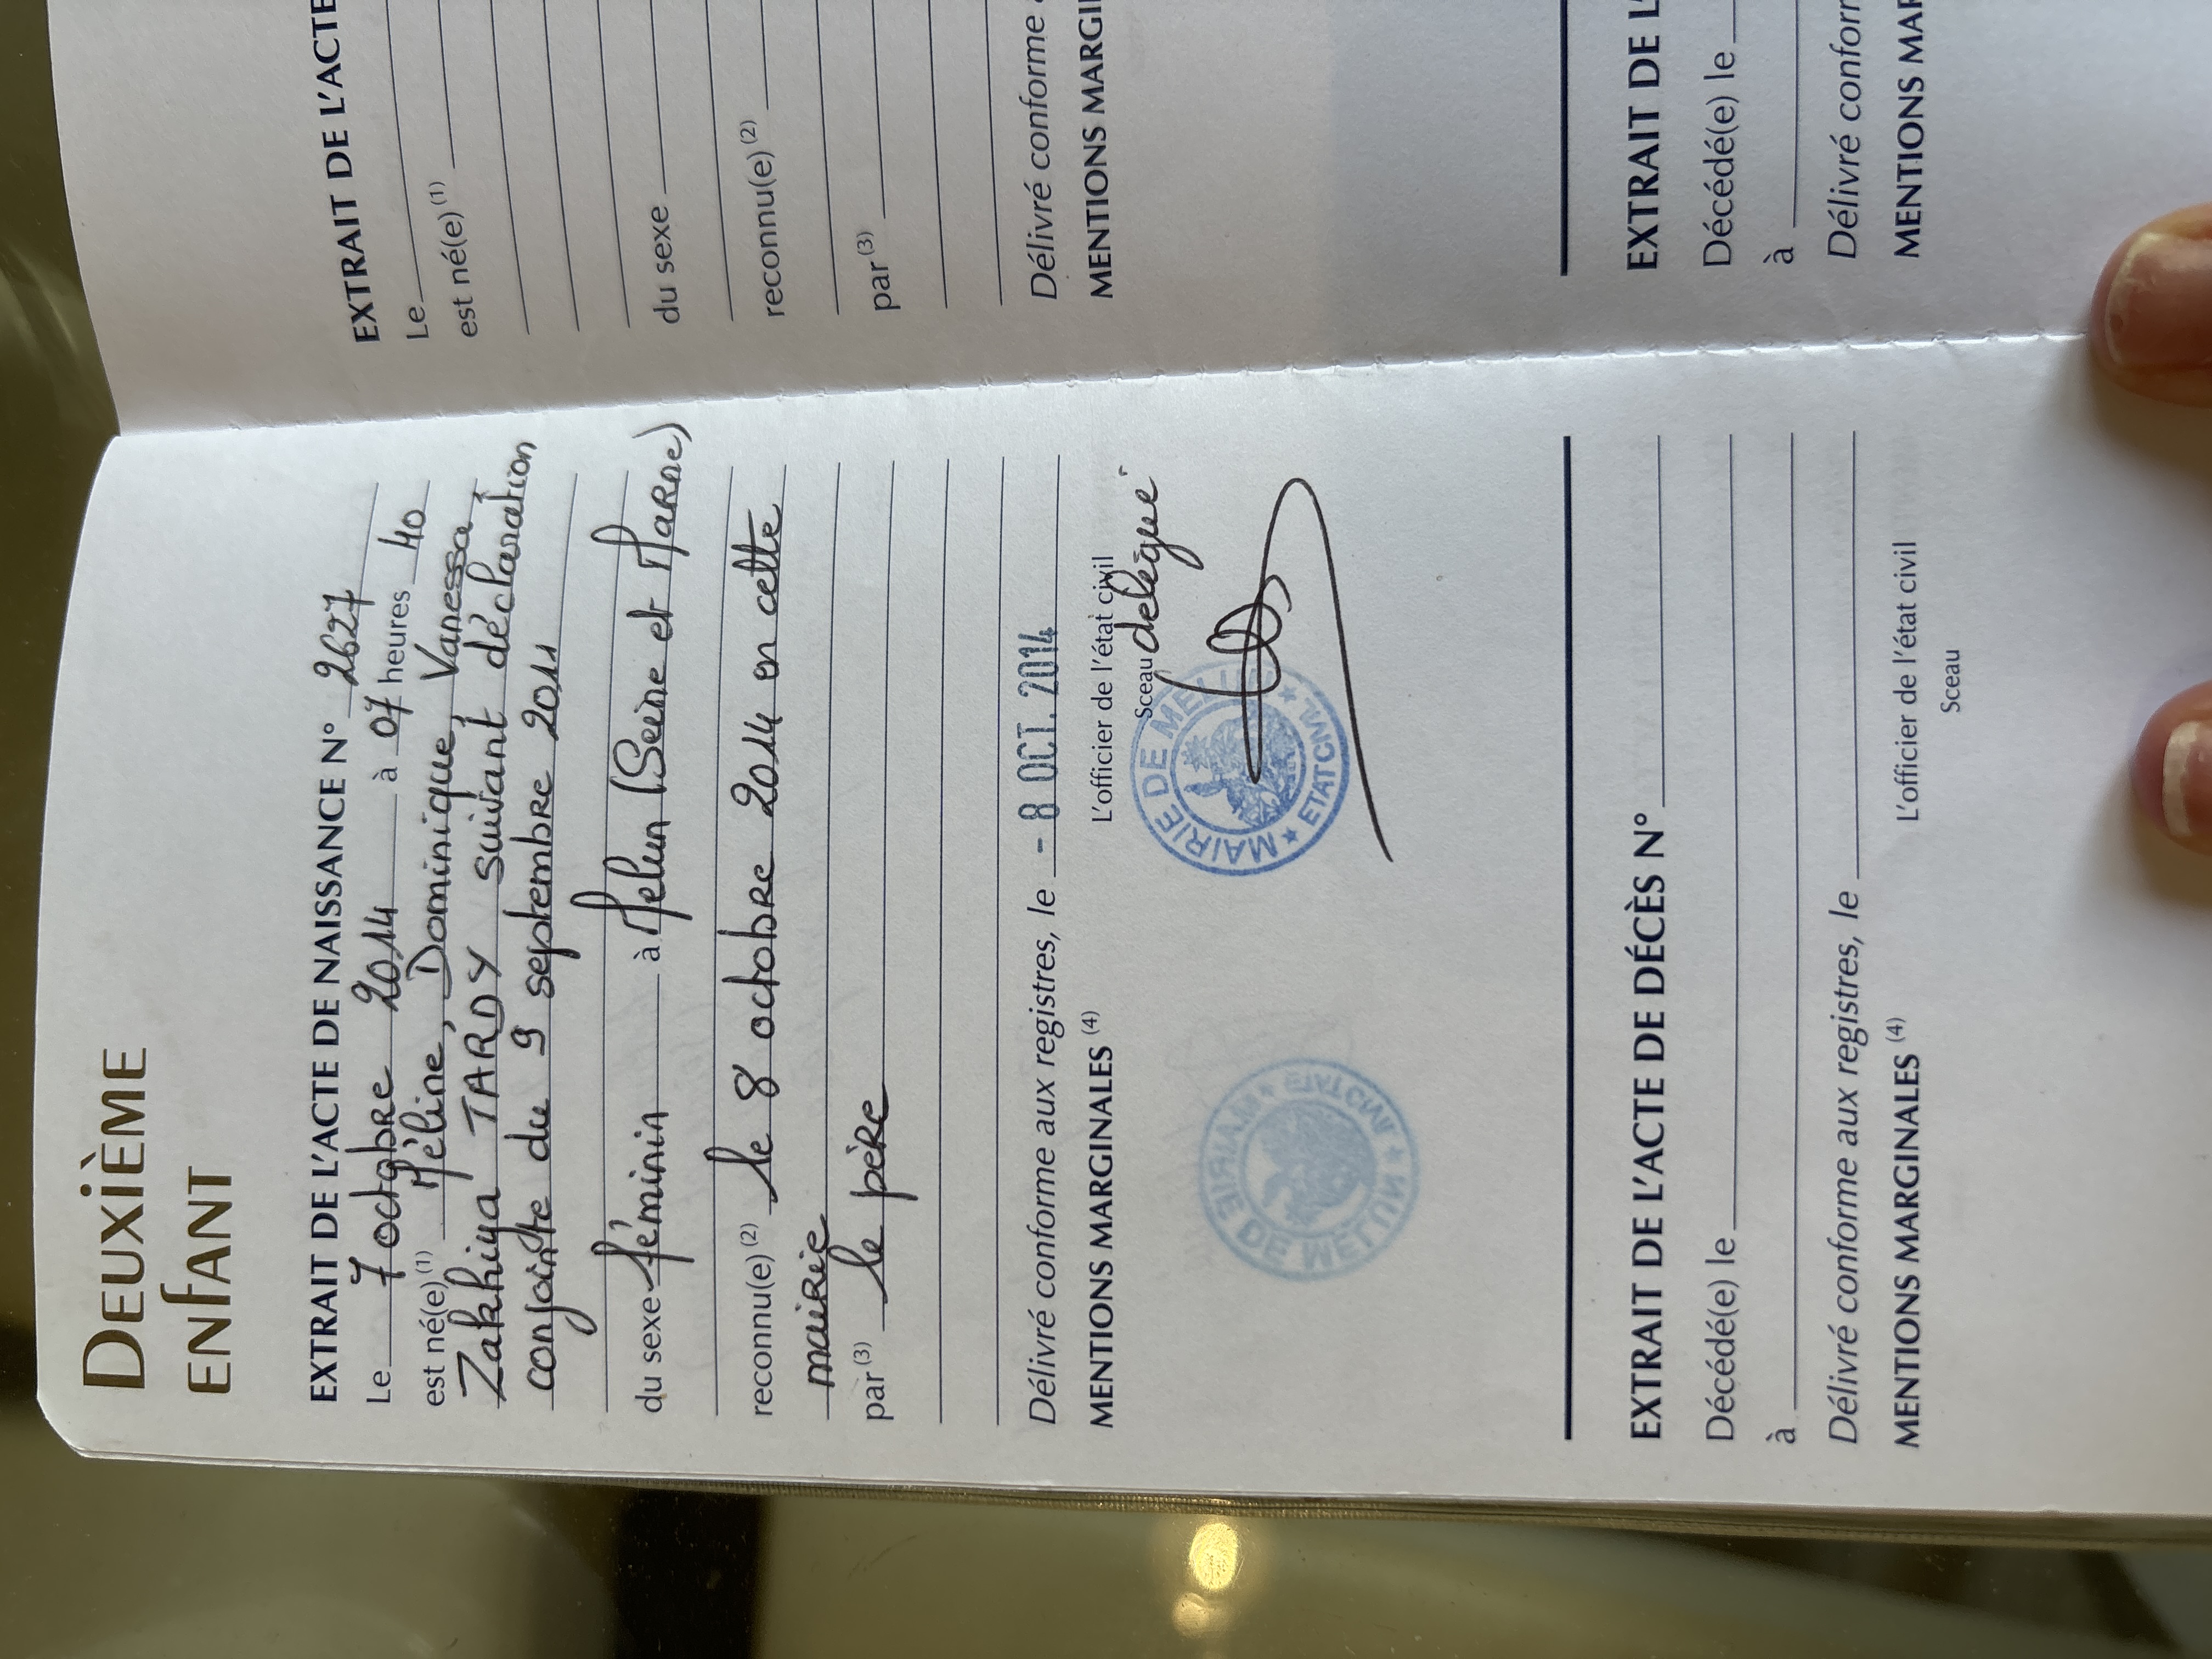 DEUXIÈME
ENFANT
EXTRAIT DE L'ACTE DE NAISSANCE N° 2627
Le 7 octobre 2014 à 07 heures 40
est né(e) (1) Méline, Dominique, Vanessa,
Zakhiya TARDY suivant déclaration
conjointe du 9 septembre 2011
du sexe féminin à Melun (Seine et Marne)
reconnu(e) (2) le 8 octobre 2014 en cette
mairie
par (3) le père
Délivré conforme aux registres, le - 8 OCT. 2014
MENTIONS MARGINALES (4)
L'officier de l'état civil
Sceau délégué
MAIRIE DE MELUN ★ ETAT CIVIL ★
MAIRIE DE MELUN ★ ETAT CIVIL ★
EXTRAIT DE L'ACTE DE DÉCÈS N°
Décédé(e) le
à
Délivré conforme aux registres, le
MENTIONS MARGINALES (4)
L'officier de l'état civil
Sceau
EXTRAIT DE L'ACTE
Le
est né(e) (1)
du sexe
reconnu(e) (2)
par (3)
Délivré conforme
MENTIONS MARGI
EXTRAIT DE L'
Décédé(e) le
à
Délivré conform
MENTIONS MAR